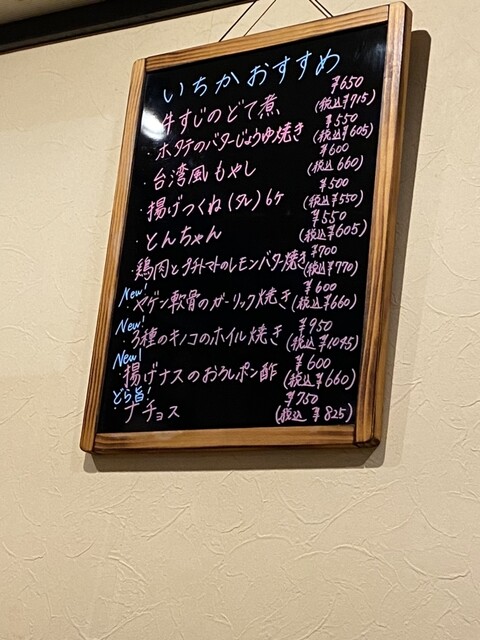 いちかおすすめ
牛すじのどて煮 ¥650
(税込¥715)
・ホタテのバターじょうゆ焼き ¥550
(税込¥605)
・台湾風もやし ¥600
(税込660)
・揚げつくね(タレ)6ヶ ¥500
(税込¥550)
・とんちゃん ¥550
(税込¥605)
・鶏肉とプチトマトのレモンバター焼き ¥700
(税込¥770)
New!
・ヤゲン軟骨のガーリック焼き ¥600
(税込¥660)
New!
・3種のキノコのホイル焼き ¥950
(税込¥1045)
New!
・揚げナスのおろしポン酢 ¥600
(税込¥660)
どら旨!
・ナチョス ¥750
(税込¥825)